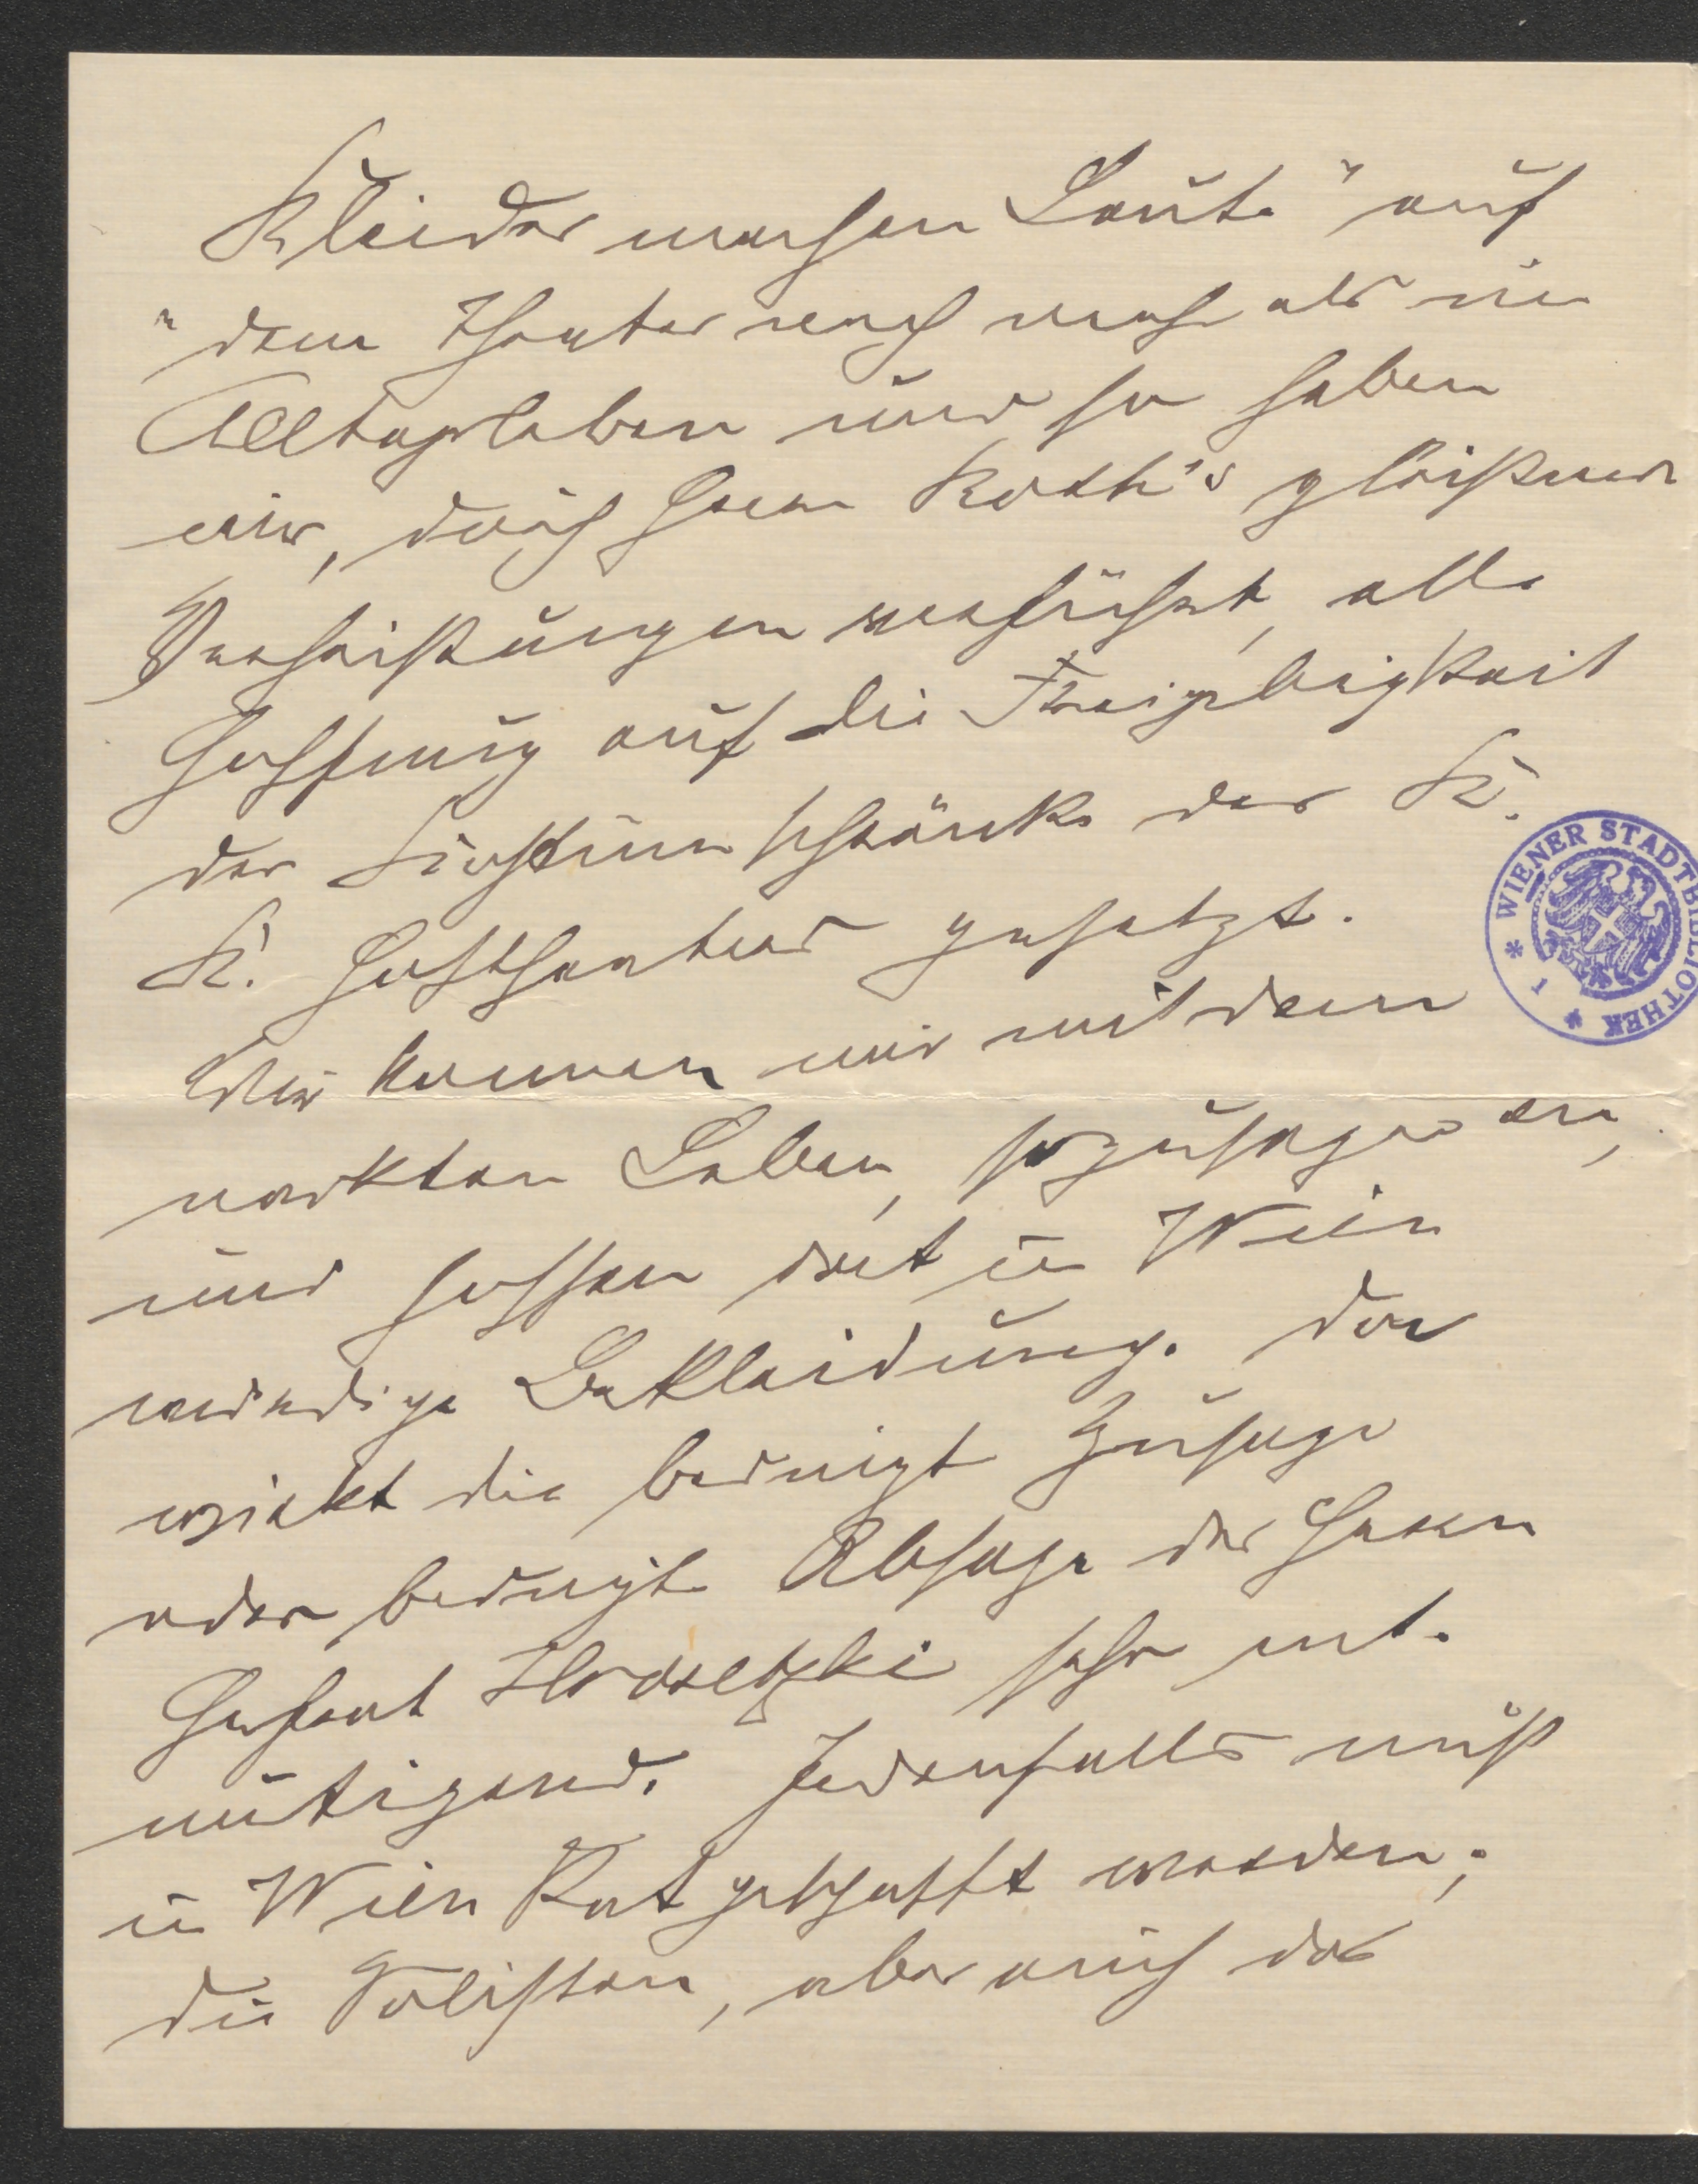 Kleider machen Leute" auf
"dem Theater noch mehr als im
Alltagsleben und so haben
wir, durch Herrn Roth's gleißende
Verheißungen verführt, alle
Hoffnung auf die Freigebigkeit
der Kostümschränke der K.
K. Hoftheater gesetzt.
Wir kommen wir mit dem
nackten Leben, sozusagen an,
und hoffen dort in Wien
würdige Bekleidung. Da
wirkt die bedingte Zusage
oder bedingte Absage des Herrn
Hofrat Hrdseltzki sehr ent-
mutigend. Jedenfalls muß
in Wien Rat geschafft werden;
die Solisten, aber auch das
WIENER STADTBIBLIOTHEK
1